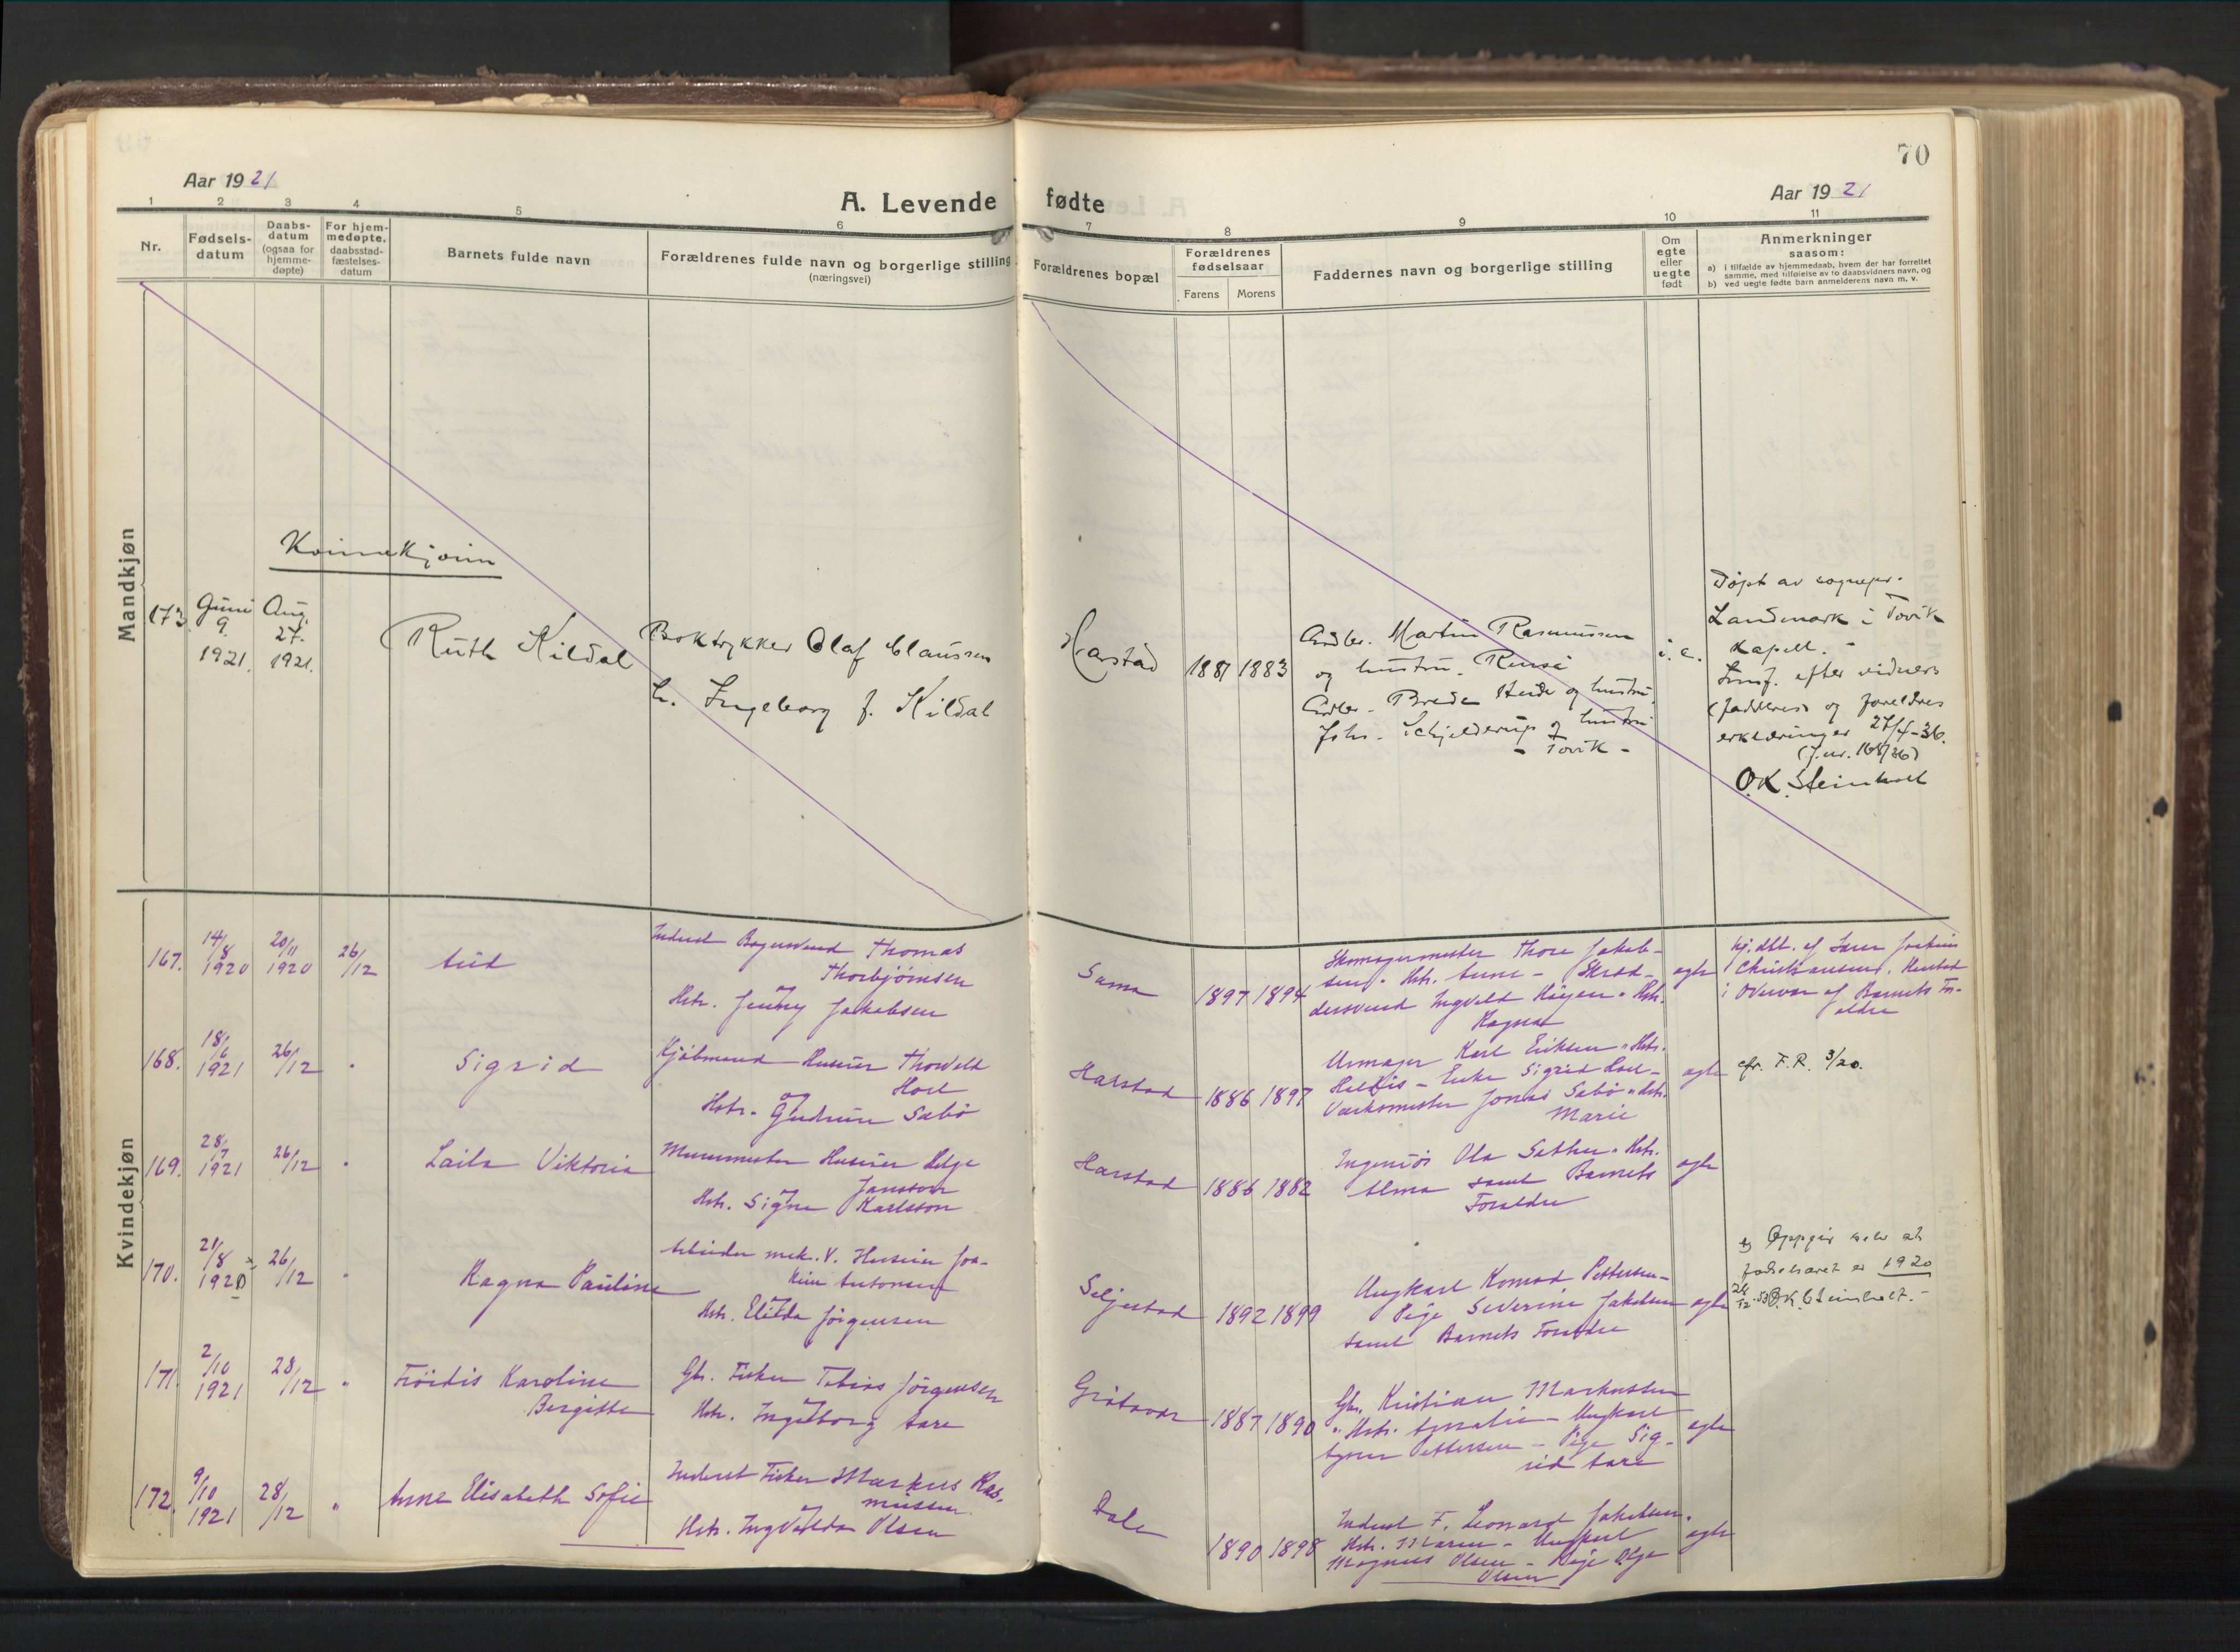 70
Aar 1921
A. Levende fødte
Aar 1921
1 2 3 4 5 6 7 8 9 10 11
Nr.
Fødsels-
datum
Daabs-
datum
(ogsaa for
hjemme-
døpte)
For hjem-
medøpte,
daabsstad-
fæstelses-
datum
Barnets fulde navn
Forældrenes fulde navn og borgerlige stilling
(næringsvei)
Forældrenes bopæl
Forældrenes
fødselsaar
Farens Morens
Faddernes navn og borgerlige stilling
Om
egte
eller
uegte
født
Anmerkninger
saasom:
a) i tilfælde av hjemmedaab, hvem der har forrettet
samme, med tilføielse av to daabsvidners navn, og
b) ved uegte fødte barn anmelderens navn m. v.
Mandkjøn
Kvinnekjønn
173.
Juni
9.
1921.
Aug.
27.
1921.
Ruth Kildal
Boktrykker Olaf Claussen
h. Ingeborg f. Kildal
Harstad
1881 1883
Martin Rasmussen
og hustru
og hustru
Johs. Schjelderup og hustru
- Tovik -
Døpt av sognepr.
Landmark i Tovik
kapell. -
Innf. efter vidners
(fadderes) og foreldres
erklæringer 27/4-36.
(J.nr. 168/36)
O.K. Steinholt
Kvindekjøn
167.
14/8
1920
20/11
1920
26/12
Aud
Inderst Bagersvend Thomas
Thorbjörnsen
og
Hstr. Jenny Jakobsen
Sama
1897 1894
Skomagermester Thore Jakob-
sen " Hstr. Anne - Skræd-
dersvend Ingvald Høyen " Hstr.
Ragna
ægte
Hj. dbt. af
Christiansen, Harstad
i Overvær af Barnets For-
ældre
168.
18/6
1921
26/12
"
Sigrid
Kjøbmand Huseier Thorvald
Hoel
og
Hstr. Gudrun Sabö
Harstad
1886 1897
Urmager Karl Eriksen " Hstr.
Enke Sigrid Hoel -
Værksmester Jonas Sabö " Hstr.
Marie
ægte
cfr. F.R. 3/20.
169.
28/7
1921
26/12
"
Laila Viktoria
Murmester Huseier Helge
Jansson
og
Hstr. Signe Karlsson
Harstad
1886 1882
Ingeniör Ola Sæther " Hstr.
Alma samt Barnets
Forældre
ægte
170.
21/8
1920
26/12
"
Ragna Pauline
Arbeider mek. V. Huseier Joa-
kim Antonsen
og
Hstr. Elida Jörgensen
Seljestad
1892 1899
Ungkarl Konrad Pettersen -
Pige Severine Jakobsen
samt Barnets Forældre
ægte
x) Oppgir selv at
fødselsaret er 1920
O.K. Steinholt. -
171.
2/10
1921
28/12
"
Fröidis Karoline
Bergitte
Gbr. Fisker Tobias Jörgensen
og
Hstr. Ingeborg Aare
Grötavær
1887 1890
Gbr. Kristian Markussen
" Hstr. Amalie - Ungkarl
Pettersen - Pige Sig-
rid Aare
ægte
172.
9/10
1921
28/12
"
Anne Elisabeth Sofie
Inderst Fisker Markus Ras-
mussen
og
Hstr. Ingvalda Olsen
Dale
1890 1898
Inderst F. Leonard Jakobsen "
Hstr. Maren - Ungkarl
Magnus Olsen - Pige Olga
Olsen
ægte